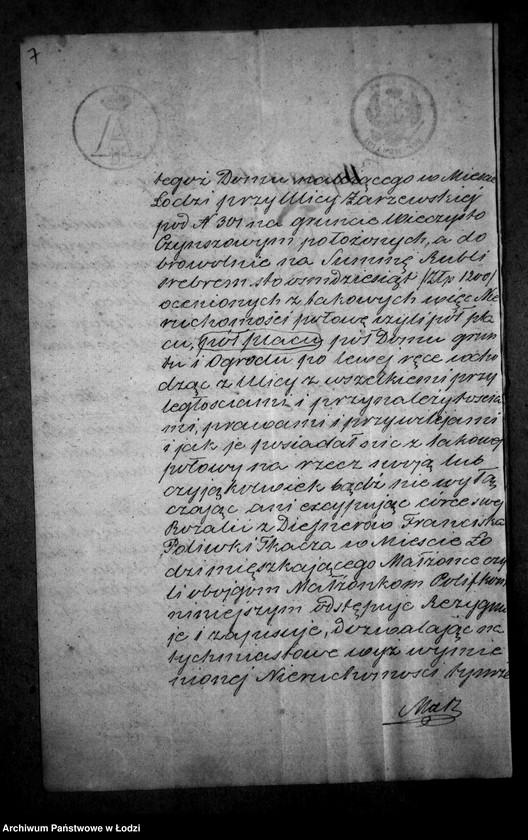 7
tegoż Domu należącego w Mieście
Łodzi przy Ulicy Zarzewskiej
pod № 301 na gruncie Wieczysto
Czynszowym położonych, a do
browolnie na Summę Rubli
srebrem sto osmdziesiąt /Złp 1200/
ocenionych z takowych więc Nie
ruchomości połowę czyli pół pla
cu, pół placu, pół Domu grun
tu i Ogrodu po lewej ręce wcho
dząc z Ulicy z wszelkiemi przy
ległościami i przynależytościa
mi, prawami i przywilejami
i jak je posiadał nic z takowej
połowy na rzecz swoją lub
czyją kolwiek bądź nie wyłą
czając ani excypując córce swej
Rozalii z Franciszka
Poliwki Tkacza w Mieście Ło
dzi mieszkającego Małżonce czy
li obojgom Małżonkom
niniejszym odstępuje Rezygnu
je i zapisuje, dozwalając na
tychmiastowe wyż wymie
nionej Nieruchomości tymże
Małż
Archiwum Państwowe w Łodzi